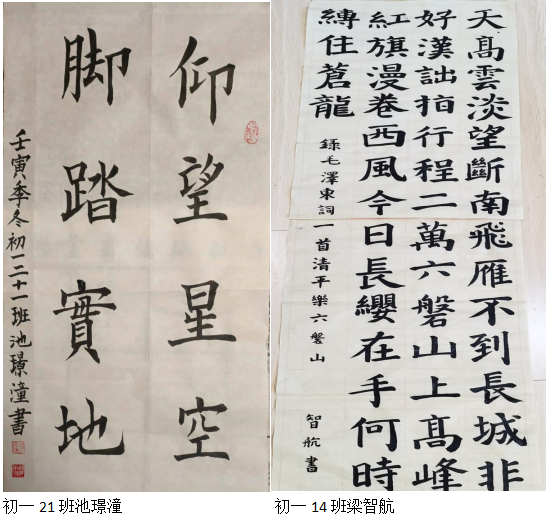 仰望星空
脚踏實地
壬寅季冬初一二十一班池璟潼書
天髙雲淡望斷南飛雁不到長城非
好漢詘指行程二萬六磐山上髙峰
紅旗漫卷西風今日長纓在手何時
縛住蒼龍
録毛澤東詞一首清平樂六磐山
智航書
初一 21 班池璟潼
初一 14 班梁智航